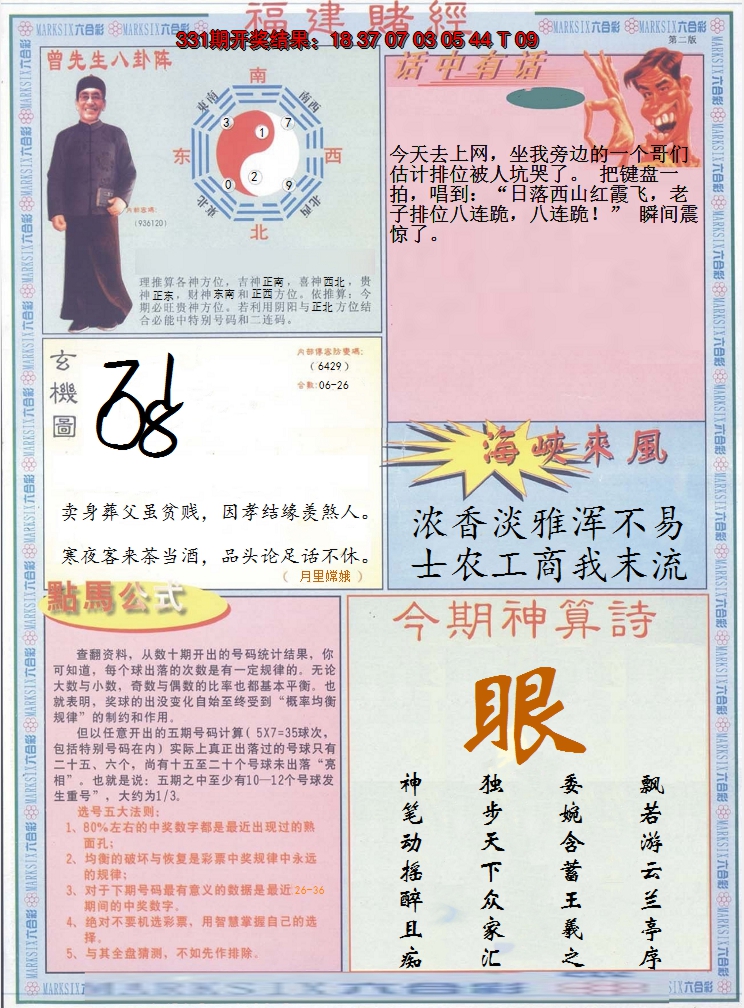 福建賭經
331期开奖结果：18 37 07 03 05 44 T 09
第二版
MARKSIX六合彩
曾先生八卦阵
南
東南
西南
3
1
7
东
西
0
2
9
東北
西北
北
内部密碼:
(936120)
理推算各神方位，吉神正南，喜神西北，贵
神正东，财神东南和正西方位。依推算：今
期必旺贵神方位。若利用阴阳与正北方位结
合必能中特别号码和二连码。
话中有话
今天去上网，坐我旁边的一个哥们
估计排位被人坑哭了。 把键盘一
拍，唱到：“日落西山红霞飞，老
子排位八连跪，八连跪！” 瞬间震
惊了。
玄機圖
（6429）
合数:06-26
卖身葬父虽贫贱，因孝结缘羡煞人。
寒夜客来茶当酒，品头论足话不休。
（ 月里嫦娥 ）
海峽來風
浓香淡雅浑不易
士农工商我末流
點馬公式
查翻资料，从数十期开出的号码统计结果，你
可知道，每个球出落的次数是有一定规律的。无论
大数与小数，奇数与偶数的比率也都基本平衡。也
就表明，奖球的出没变化自始至终受到“概率均衡
规律”的制约和作用。
但以任意开出的五期号码计算( 5X7=35球次，
包括特别号码在内) 实际上真正出落过的号球只有
二十五、六个，尚有十五至二十个号球未出落“亮
相”。也就是说：五期之中至少有10—12个号球发
生重号”，大约为1/3。
选号五大法则：
1、80%左右的中奖数字都是最近出现过的熟
面孔；
2、均衡的破坏与恢复是彩票中奖规律中永远
的规律；
3、对于下期号码最有意义的数据是最近26-36
期间的中奖数字。
4、绝对不要机选彩票，用智慧掌握自己的选
择。
5、与其全盘猜测，不如先作排除。
今期神算詩
眼
飘若游云兰亭序
委婉含蓄王羲之
独步天下众家汇
神笔动摇醉且痴